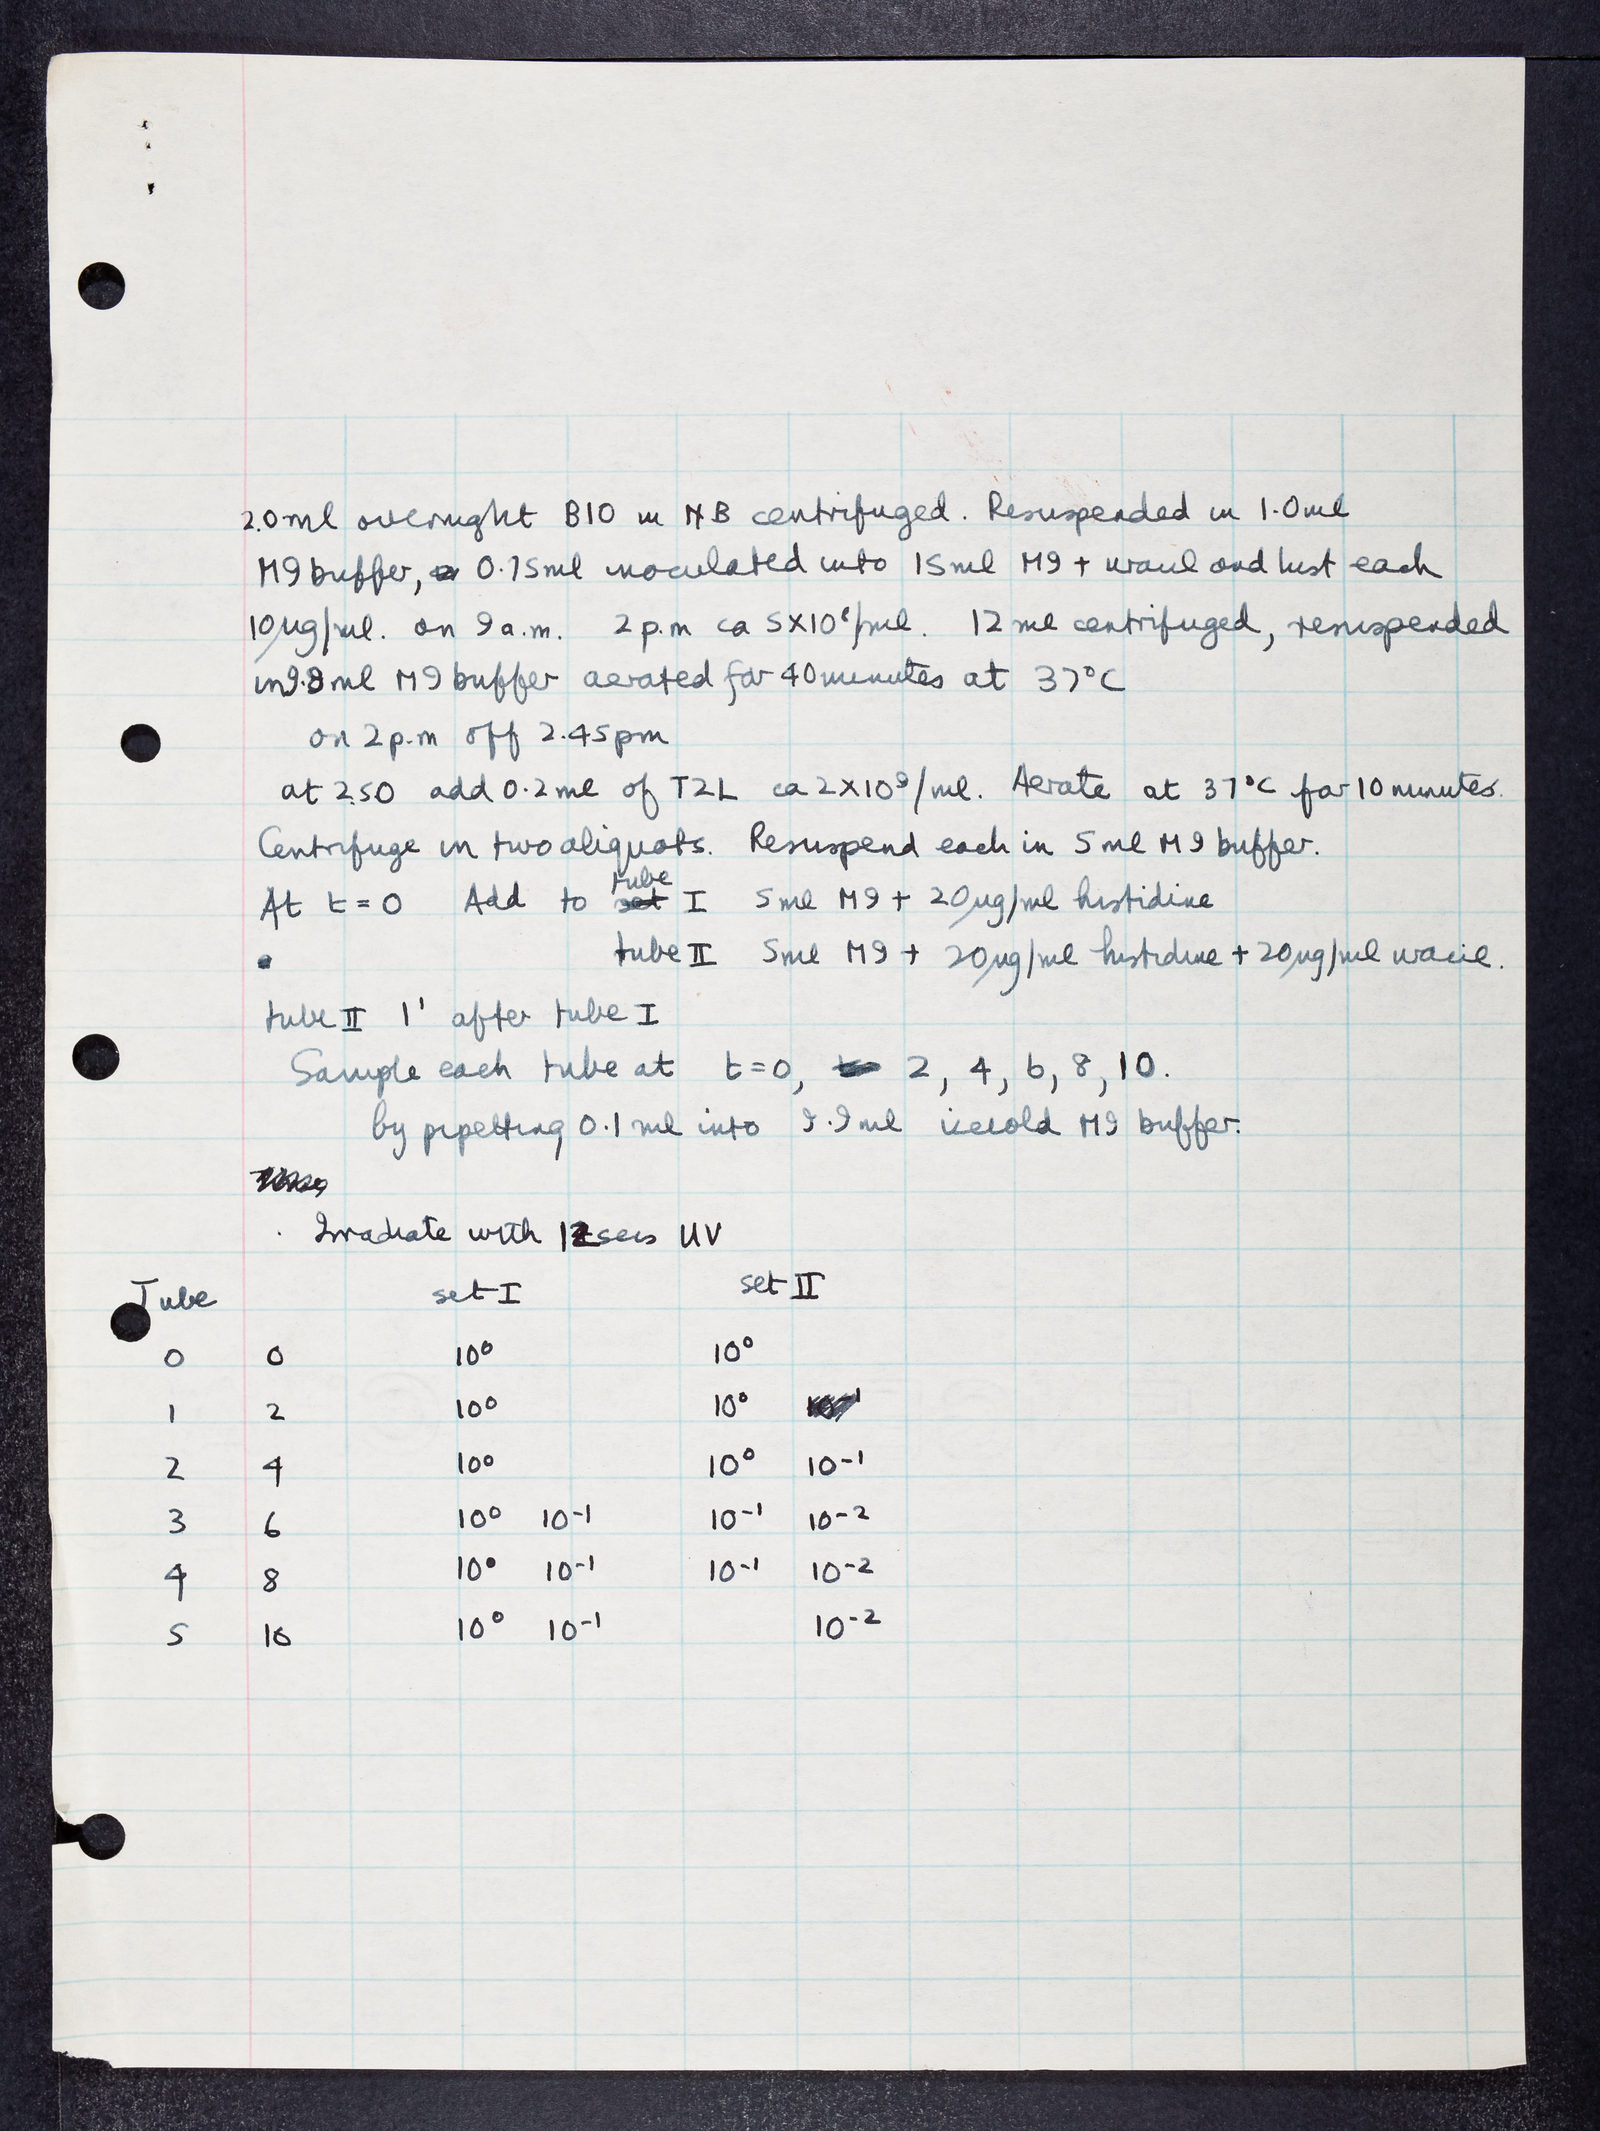 2.0ml overnight B10 in NB centrifuged. Resuspended in 1.0ml
M9 buffer, 0.75ml inoculated into 15ml M9 + uracil and hist each
10µg/ml. on 9 a.m. 2 p.m ca 5X10⁸/ml. 12 ml centrifuged, resuspended
in 9.8ml M9 buffer aerated for 40 minutes at 37°C
on 2p.m off 2.45pm
at 2.50 add 0.2 ml of T2L ca 2X10⁹/ml. Aerate at 37°C for 10 minutes.
Centrifuge in two aliquots. Resuspend each in 5 ml M9 buffer.
At t = 0 Add to tube I 5 ml M9 + 20µg/ml histidine
tube II 5ml M9 + 20µg/ml histidine + 20µg/ml uracil.
tube II 1' after tube I
Sample each tube at t=0, 2, 4, 6, 8, 10.
by pipetting 0.1 ml into 9.9ml icecold M9 buffer.
Irradiate with 12 secs UV
Tube set I set II
0 0 10⁰ 10⁰
1 2 10⁰ 10⁰
2 4 10⁰ 10⁰ 10⁻¹
3 6 10⁰ 10⁻¹ 10⁻¹ 10⁻²
4 8 10⁰ 10⁻¹ 10⁻¹ 10⁻²
5 10 10⁰ 10⁻¹ 10⁻²